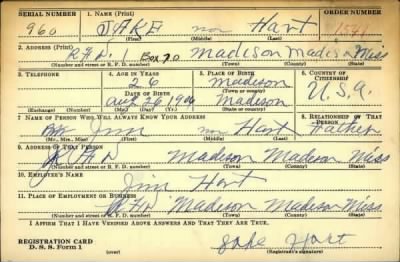 SERIAL NUMBER 1. NAME (Print) ORDER NUMBER
960 JAKE Hart
(First) (Middle) (Last)
2. ADDRESS (Print)
Box 70 Madison Madison Miss
(Number and street or R. F. D. number) (Town) (County) (State)
3. TELEPHONE 4. AGE IN YEARS 5. PLACE OF BIRTH 6. COUNTRY OF CITIZENSHIP
26 Madison
(Town or county)
DATE OF BIRTH U.S.A.
Aug 26 Madison
(Exchange) (Number) (Mo.) (Day) (Yr.) (State or country)
7. NAME OF PERSON WHO WILL ALWAYS KNOW YOUR ADDRESS 8. RELATIONSHIP OF THAT PERSON
Jim Hart Father
(Mr., Mrs., Miss) (First) (Middle) (Last)
9. ADDRESS OF THAT PERSON
Madison Madison Miss
(Number and street or R. F. D. number) (Town) (County) (State)
10. EMPLOYER'S NAME
Jim Hart
11. PLACE OF EMPLOYMENT OR BUSINESS
Madison Madison Miss
(Number and street or R. F. D. number) (Town) (County) (State)
I AFFIRM THAT I HAVE VERIFIED ABOVE ANSWERS AND THAT THEY ARE TRUE.
Jake Hart
REGISTRATION CARD
D. S. S. Form 1 (over) (Registrant's signature)